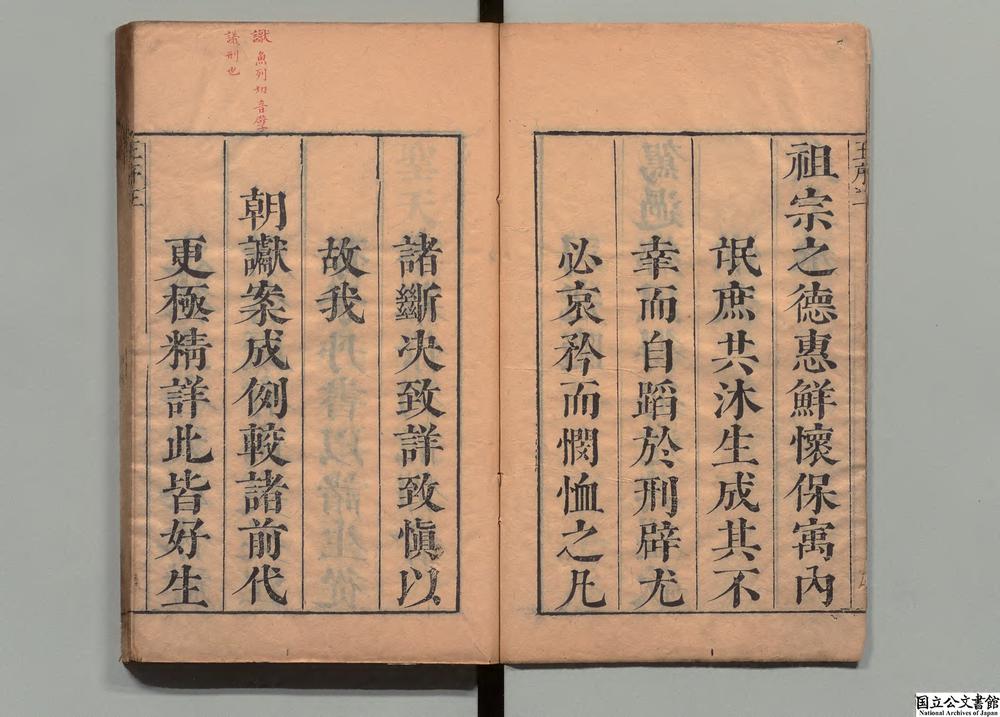 祖宗之德惠鮮懷保寓內
氓庶共沐生成其不
幸而自蹈於刑辟尤
必哀矜而憫恤之凡
諸斷决致詳致慎以
故我
朝讞案成例較諸前代
更極精詳此皆好生
讞 魚列切音孽
議刑也
王序二
国立公文書館
National Archives of Japan